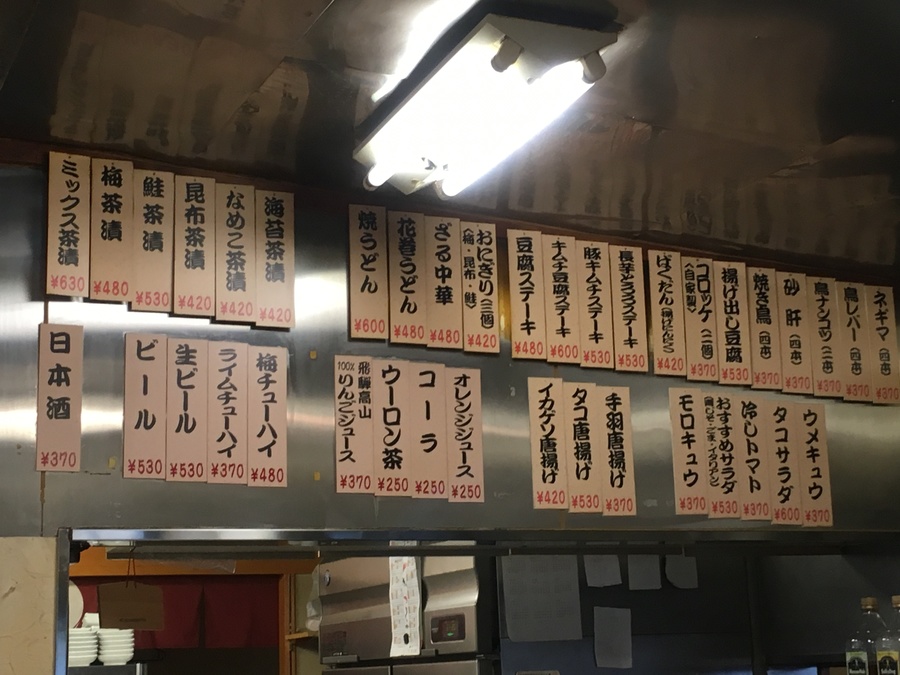 ミックス茶漬 ¥630
梅茶漬 ¥480
鮭茶漬 ¥530
昆布茶漬 ¥420
なめこ茶漬 ¥420
海苔茶漬 ¥420
焼うどん ¥600
花巻うどん ¥480
ざる中華 ¥480
おにぎり(二個)
〈梅・昆布・鮭〉
¥420
豆腐ステーキ ¥480
キムチ豆腐ステーキ ¥600
豚キムチステーキ ¥530
長芋とろろステーキ ¥530
ばくだん ¥420
コロッケ(二個)
〈自家製〉
¥370
揚げ出し豆腐 ¥530
焼き鳥(四本) ¥370
砂肝(四本) ¥370
鳥ナンコツ(二本) ¥370
鳥レバー(四本) ¥370
ネギマ(四本) ¥370
日本酒 ¥370
ビール ¥530
生ビール ¥530
ライムチューハイ ¥370
梅チューハイ ¥480
飛騨高山
100%りんごジュース
¥370
ウーロン茶 ¥250
コーラ ¥250
オレンジジュース ¥250
イカゲソ唐揚げ ¥420
タコ唐揚げ ¥530
手羽唐揚げ ¥370
モロキュウ ¥370
おすすめサラダ
¥530
冷しトマト ¥370
タコサラダ ¥600
ウメキュウ ¥370